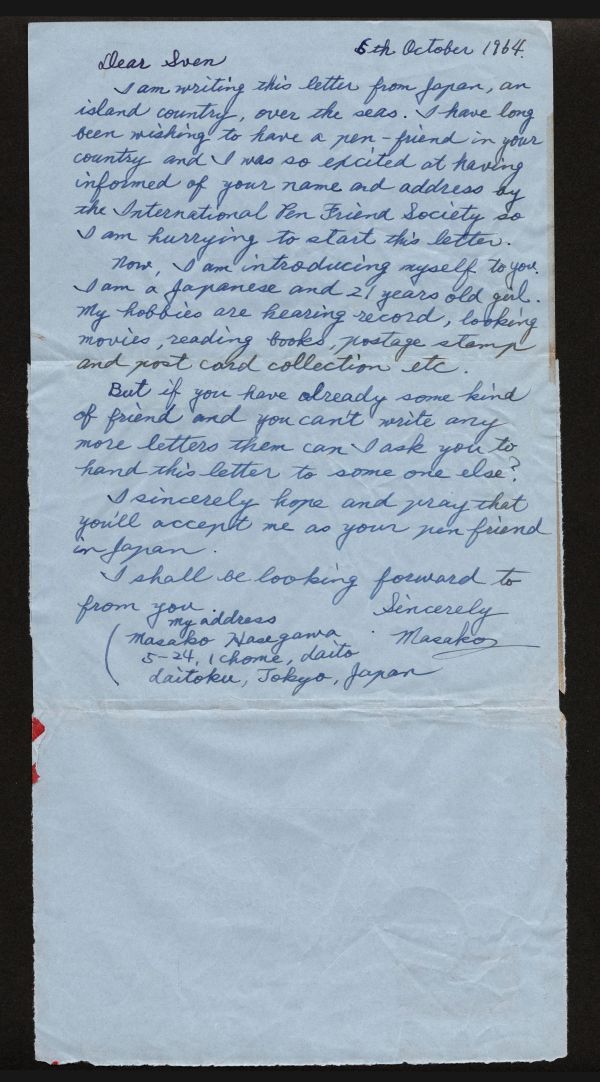 5th October 1964.
Dear Sven
I am writing this letter from Japan, an
island country, over the seas. I have long
been wishing to have a pen-friend in your
country and I was so excited at having
informed of your name and address by
the International Pen Friend Society so
I am hurrying to start this letter.
Now, I am introducing myself to you.
I am a Japanese and 21 years old girl.
My hobbies are hearing record, looking
movies, reading books, postage stamp
and post card collection etc.
But if you have already some kind
of friend and you can't write any
more letters them can I ask you to
hand this letter to some one else?
I sincerely hope and pray that
you'll accept me as your pen friend
in Japan.
I shall be looking forward to
from you. Sincerely
my address
Masako Hasegawa Masako
5-24, 1 chome, daito
daitoku, Tokyo, Japan